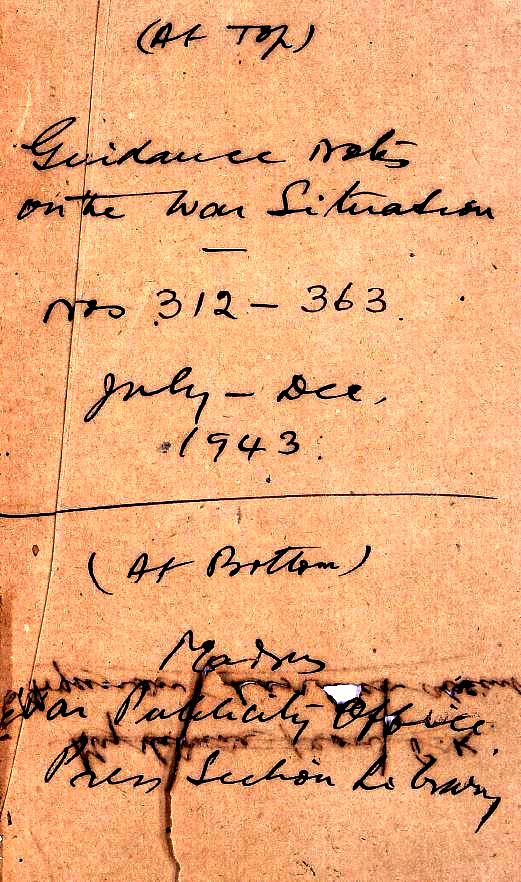 (At Top)
Guidance Notes
on the War Situation
—
Nos 312 – 363.
July – Dec,
1943.
(At Bottom)
Madras
War Publicity Office.
Press Section Library